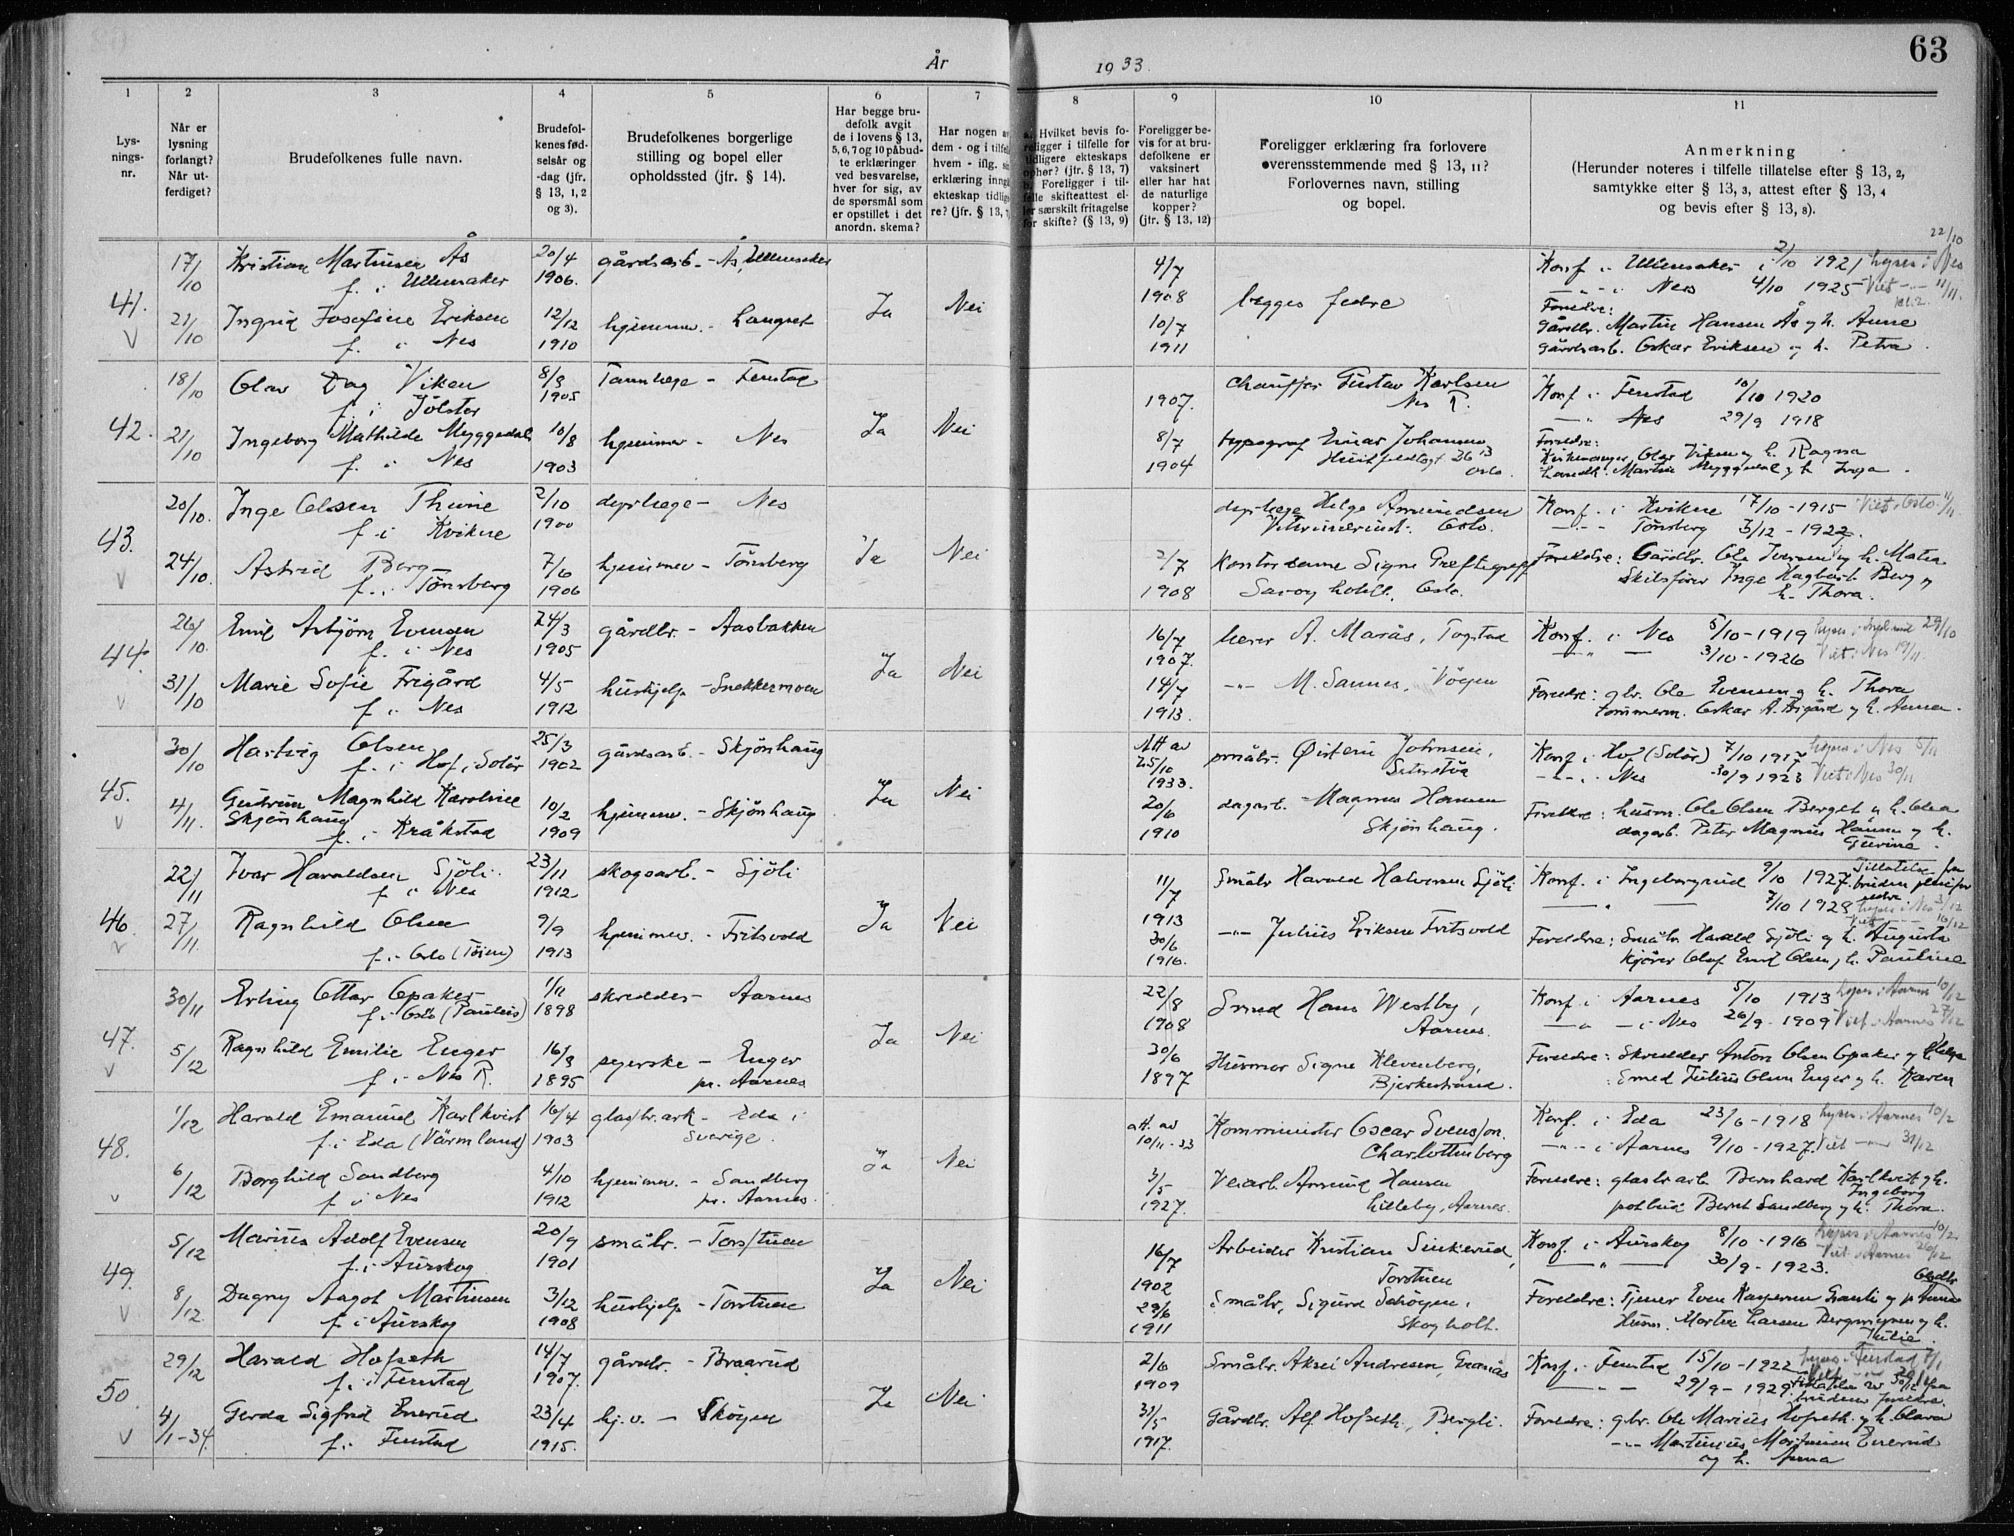 63
År
1933.
1
2
3
4
5
6
7
8
9
10
11
Lys-
nings-
nr.
Når er
lysning
forlangt?
Når ut-
ferdiget?
Brudefolkenes fulle navn.
Brudefol-
kenes fød-
selsår og
-dag (jfr.
§ 13, 1, 2
og 3).
Brudefolkenes borgerlige
stilling og bopel eller
opholdssted (jfr. § 14).
Har begge bru-
defolk avgit
de i lovens § 13,
5, 6, 7 og 10 påbud-
te erklæringer
ved besvarelse,
hver for sig, av
de spørsmål som
er opstillet i det
anordn. skema?
Har nogen
dem - og i
hvem - iflg.
erklæring
ekteskap
re? (jfr. § 13,
Hvilket bevis fo-
religger i tilfelle for
tidligere ekteskaps
ophør? (jfr. § 13, 7)
Foreligger i til-
felle skifteattest el-
ler særskilt fritagelse
for skifte? (§ 13, 9)
Foreligger be-
vis for at bru-
defolkene er
vaksinert
eller har hat
de naturlige
kopper?
(jfr. § 13, 12)
Foreligger erklæring fra forlovere
overensstemmende med § 13, 11?
Forlovernes navn, stilling
og bopel.
Anmerkning
(Herunder noteres i tilfelle tillatelse efter § 13, 2,
samtykke efter § 13, 3, attest efter § 13, 4
og bevis efter § 13, 8).
41.
17/10
Kristian Martinsen Ås
f. i Ullensaker
20/4
1906.
gårdsarb. - Ås, Ullensaker
21/10
Ingrid Josefine Eriksen
f. i Nes
12/12
1910
hjemmev. - Langset
Ja
Nei
4/7
1908
10/7
1911
begges fedre
22/10
Konf. i Ullensaker 2/10 1921 lyses i Nes
— " — i Nes 4/10 1925 Viet — " — 11/11.
Foreldre:
Gårdbr. Martin Hansen Ås og h. Anne
gårdsarb. Oskar Eriksen og h. Petra.
42.
18/10
Olav Dag Viken
f. i Jølster
8/3
1905
Tannlege - Fenstad
21/10
Ingeborg Mathilde Myggedal
f. i Nes
10/8
1903
hjemmev - Nes
Ja
Nei
1907.
8/7
1904
Chauffør Gustav Karlsen
Nes R.
typograf Einar Johansen
Huitfeldtsgt. 26
Oslo.
Konf. i Fenstad 10/10 1920
— " — Nes 29/9 1918
Foreldre:
Kirkesanger Olav Viken og h. Ragna
Landh. Martin Myggedal og h. Inga.
43.
20/10.
Inge Olsen Thune
f. i Kvikne
2/10
1900
dyrlege - Nes
24/10.
Astrid Berg
f. i Tønsberg
7/6
1906
hjemmev - Tønsberg
Ja
Nei
2/7
1908
dyrlege Helge Amundsen
Oslo.
Kontordame Signe
Savoy hotell, Oslo.
Konf. i Kvikne 17/10-1915 Viet i Oslo 4/11.
— " — Tønsberg 3/12-1922.
Foreldre: Gårdbr. Ole Iversen og h. Matea
Skibsfører Inge Hagbart Berg og
h. Thora.
44.
26/10.
Emil Asbjørn Evensen
f. i Nes
24/3
1905
gårdbr. - Aasbakken
31/10
Marie Sofie Frigård
f. i Nes
4/5
1912
hushjelp - Snekkermoen
Ja
Nei
16/7
1907.
14/7
1913.
lærer A. Marås, Togstad
— " — M. Sannes, Vågen
Konf. i Nes 5/10-1919 29/10
— " — 3/10-1926 Viet i Nes 19/11.
Foreldre: gbr. Ole Evensen og h. Thora
tømmerm. Oskar A. Frigård og h. Anna.
45.
30/10
Hartvig Olsen
f. i Hof, Solør
25/3
1902
gårdsarb. - Skjønhaug
4/11.
Gudrun Magnhild Karoline
Skjønhaug
f. i Kråkstad
10/2
1909
hjemmev. - Skjønhaug
Ja
Nei
Att av
25/10
1933.
20/6
1910
småbr. Øistein Johnsen,
Seterstøa
dagarb. Magnus Hansen
Skjønhaug.
Konf. i Hof (Solør) 7/10 1917 lyses i Nes 5/11
— " — i Nes 30/9 1923 Viet i Nes 30/11
Foreldre: husm. Ole Olsen Berget og h. Olea
dagarb. Peter Magnus Hansen og h.
Gurine.
46.
22/11
Ivar Haraldsen Sjøli.
f. i Nes
23/11
1912
skogsarb. - Sjøli
27/11.
Ragnhild Olsen
f. i Oslo (Tøien)
9/9
1913
hjemmev. - Fritsvold
Ja
Nei
11/7
1913
30/6
1916.
Småbr Harald Halvorsen Sjøli
— " — Julius Eriksen Fritsvold
Konf. i Ingeborgrud 9/10 1927. Tillatelse fra
— " — 7/10 1928 lyses i Nes 3/12
Foreldre: Småbr. Harald Sjøli og h. Augusta
kjører Olaf Emil Olsen, h. Pauline
47.
30/11
Erling Ottar Opaker
f. i Oslo (Paulus)
1/11
1898
skredder - Aarnes
5/12
Ragnhild Emilie Enger
f. i Nes R.
16/3
1895
syerske - Enger
pr. Aarnes
Ja
Nei
22/8
1908
30/6
1897
Smed Hans Westby,
Aarnes.
Husmor Signe Klevenberg,
Bjerkestrand.
Konf. i Aarnes 5/10 1913 lyses i Aarnes 10/12
— " — i Nes 26/9-1909 Viet i Aarnes 27/12
Foreldre: Skredder Anton Olsen Opaker og h. Helga
Smed Julius Olsen Enger og h. Karen
48.
1/12
Harald Emanuel Karlkvist
f. i Eda (Värmland)
16/4
1903
glasbr.arb - Eda i
Sverige.
6/12
Borghild Sandberg
f. i Nes
4/10
1912
hjemmev. - Sandberg
pr. Aarnes.
Ja
Nei
att. av
10/11-33
3/5
1927.
Komminister Oscar Svensson.
Charlottenberg
Veiarb. Amund Hansen
Lilleby, Aarnes.
Konf. i Eda 23/6-1918 lyses i Aarnes 10/12
— " — i Aarnes 9/10-1927. Viet — " — 31/12
Foreldre: glasbr.arb. Bernhard Karlkvist og h.
Ingeborg
postbud Bernt Sandberg og h. Thora.
49.
5/12
Marius Adolf Evensen
f. i Aurskog
20/9
1901
småbr. - Torstuen
8/12.
Dagny Aagot Martinsen
f. i Aurskog
3/12
1908
hushjelp - Torstuen
Ja
Nei
16/7
1902
29/6
1911
Arbeider Kristian Sinkerud,
Torstuen
Småbr. Sigurd Skogen,
Skogholt.
Konf. i Aurskog 8/10-1916 lyses i Aarnes 10/12
— " — 30/9-1923. Viet i Aarnes 26/12
Foreldre: Tjener Even
Husm. Morten Larsen og h.
Julie.
50.
29/12
Harald Hofseth
f. i Fenstad
14/7
1907.
gårdbr. - Braarud
4/1-34.
Gerda Sigfrid Enerud
f. i Fenstad
23/4
1915.
hj.v. - Skogen
Ja
Nei
2/6
1909
31/5
1917.
Småbr. Aksel Andresen, Granås
Gårdbr. Alf Hofseth, Bergli.
Konf. i Fenstad 15/10-1922 lyses i Fenstad 7/1
— " — 29/9-1929. Tillatelse av 30/12 fra
brudens foreldre.
Foreldre: gbr. Ole Marius Hofseth og h. Clara
— " — Martinius Martinsen Enerud
og h. Anna